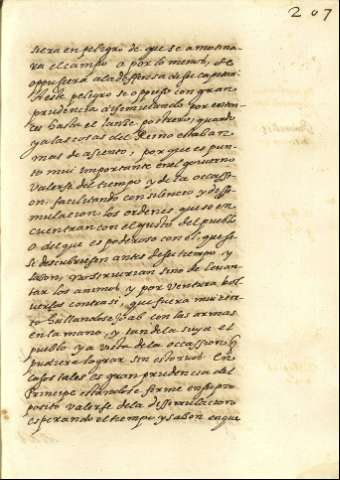 207
siera en peligro de que se amotina-
ra el campo o por lo menos, de
oppusiera a la deffensa de su capitan
A este peligro se oppuso con gran
prudencia disimulando por enton-
ces hasta el lance postrero, quando
ya las cosas del Reino estaban
mas de asiento, por que es pun-
to mui importante en el govierno
valerse del tiempo y de la occassi-
on. facilitando con silencio y dissi-
mulacion, los ordenes que se en
cuentran con el gusto del pueblo
o del que es poderoso con el; que si
se descubriessen antes de su tiempo, y
sazon, no servirian sino de levan-
tar los animos y por ventura bol
verlos contra si, que fuera mui cier-
to hallandose Joab con las armas
en la mano, y tan de la suya el
pueblo y a vista de la occassion q
pudiera lograr sin estorvos. En
casos tales es gran prudencia del
Principe estandose firme en su pro
posito valerse de la dissimulacion
esperando el tiempo y sazon en que